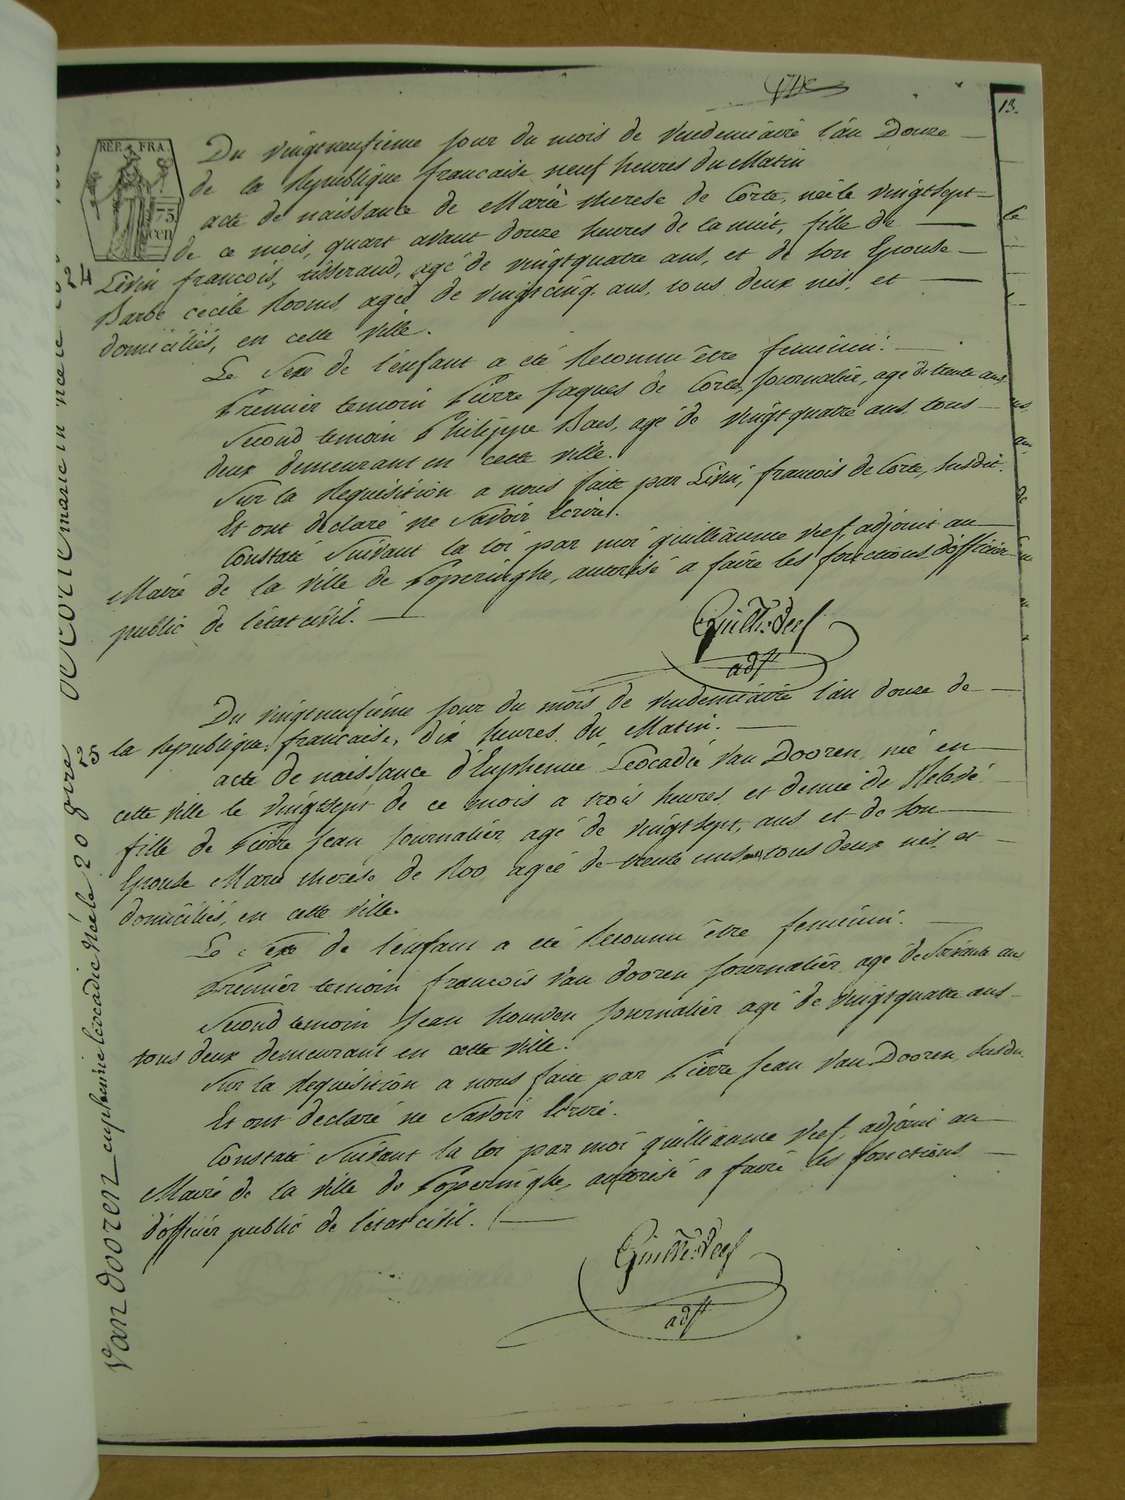 13.
REP. FRA.
75
cen
Du vingtneufième jour du mois de vendemiaire l'an Douze
de la Republique francaise neuf heures du Matin
acte de naissance de Marie therese de Corte, neé le vingtsept
de ce mois, quart avant douze heures de la nuit, fille de
24
Livin francois, tisserand, agé de vingtquatre ans, et de son Epouse
Barbe cecile Rooms, ageé de vingtcinq ans, tous deux nés, et
domiciliés, en cette ville.
Le Sexe de l'enfant a été Reconnu être feminin.
Premier temoin Pierre jaques de Corte, journalier, agé de trente ans
Second temoin Philippe Baes, agé de vingtquatre ans, tous
deux demeurant en cette ville.
Sur la Requisition a nous faite par Livin francois de Corte, susdit.
Et ont declaré ne Savoir Ecrire.
Constaté Suivant la loi par moi guilliaume Veef, adjoint au
Maire de la ville de Poperinghe, autorisé a faire les fonctions d'officier
public de l'état civil.
Guill: Veef
adjt
Du vingtneufième jour du mois de vendemiaire l'an douze de
la Republique francaise, dix heures du Matin.
25
acte de naissance d'Euphemie Leocadie Van Dooren, neé en
cette ville le vingtsept de ce mois a trois heures et demie de Relevé
fille de Pierre jean journalier, agé de vingtsept, ans et de son
Epouse Marie therése de Roo, ageé de trente ans tous deux nés, et
domiciliés, en cette ville.
Le Sexe de l'enfant a été Reconnu être feminin.
Premier temoin francois Van dooren journalier, agé de soixante ans
Second temoin jean Houwen journalier agé de vingtquatre ans
tous deux demeurant en cette ville.
Sur la Requisition a nous faite par Pierre jean Van Dooren, susdit.
Et ont declaré ne Savoir Ecrire.
Constaté Suivant la loi par moi guilliaume Veef, adjoint au
Maire de la ville de Poperinghe, autorisé a faire les fonctions
d'officier public de l'état civil.
Guill: Veef
adjt
Van dooren euphemie leocadie Neé le 20 8bre